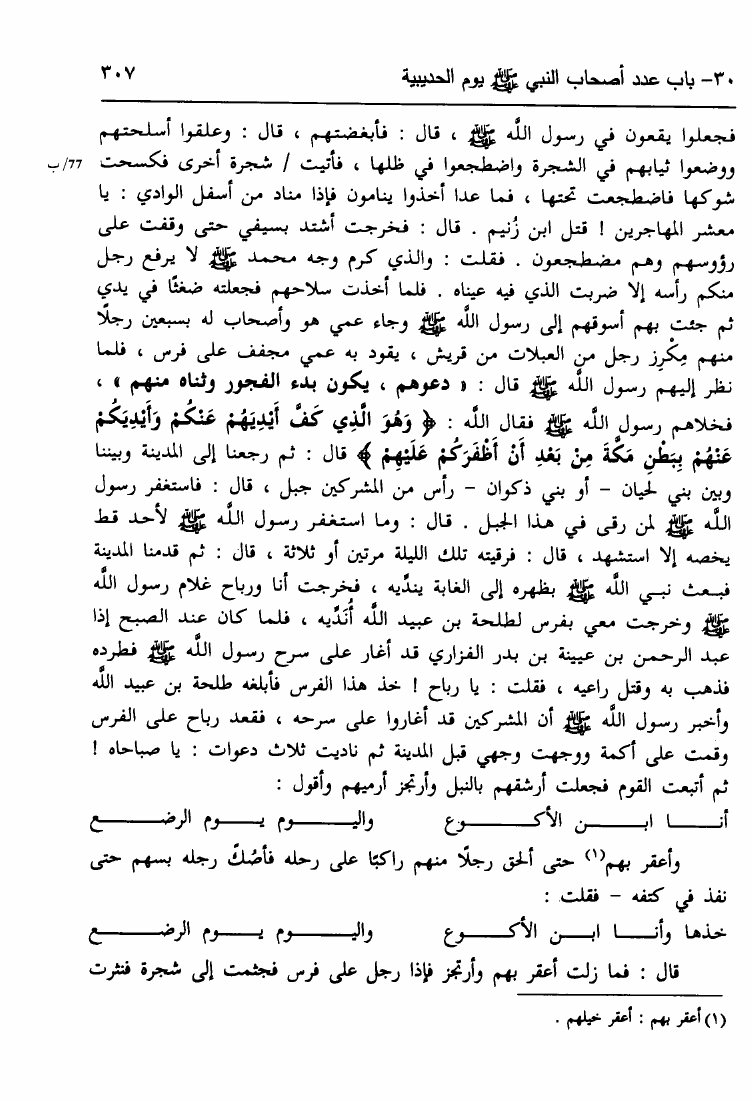 ٣٠- باب عدد أصحاب النبي ﷺ يوم الحديبية ٣٠٧
فجعلوا يقعون في رسول الله ﷺ ، قال : فأبغضتهم ، قال : وعلقوا أسلحتهم
ووضعوا ثيابهم في الشجرة واضطجعوا في ظلها ، فأتيت / شجرة أخرى فكسحت 77/ب
شوكها فاضطجعت تحتها ، فما عدا أخذوا ينامون فإذا مناد من أسفل الوادي : يا
معشر المهاجرين ! قتل ابن زُنيم . قال : فخرجت أشتد بسيفي حتى وقفت على
رؤوسهم وهم مضطجعون . فقلت : والذي كرم وجه محمد ﷺ لا يرفع رجل
منكم رأسه إلا ضربت الذي فيه عيناه . فلما أخذت سلاحهم فجعلته ضغثًا في يدي
ثم جئت بهم أسوقهم إلى رسول الله ﷺ وجاء عمي هو وأصحاب له بسبعين رجلًا
منهم مِكْرِز رجل من العبلات من قريش ، يقود به عمي مجفف على فرس ، فلما
نظر إليهم رسول الله ﷺ قال : « دعوهم ، يكون بدء الفجور وثناه منهم » ،
فخلاهم رسول الله ﷺ فقال الله : ﴿ وَهُوَ الَّذِي كَفَّ أَيْدِيَهُمْ عَنْكُمْ وَأَيْدِيَكُمْ
عَنْهُمْ بِبَطْنِ مَكَّةَ مِنْ بَعْدِ أَنْ أَظْفَرَكُمْ عَلَيْهِمْ ﴾ قال : ثم رجعنا إلى المدينة وبيننا
وبين بني لحيان - أو بني ذكوان - رأس من المشركين جبل ، قال : فاستغفر رسول
الله ﷺ لمن رقى في هذا الجبل . قال : وما استغفر رسول الله ﷺ لأحد قط
يخصه إلا استشهد ، قال : فرقيته تلك الليلة مرتين أو ثلاثة ، قال : ثم قدمنا المدينة
فبعث نبي الله ﷺ بظهره إلى الغابة يندِّيه ، فخرجت أنا ورباح غلام رسول الله
ﷺ وخرجت معي بفرس لطلحة بن عبيد الله أُنَدِّيه ، فلما كان عند الصبح إذا
عبد الرحمن بن عيينة بن بدر الفزاري قد أغار على سرح رسول الله ﷺ فطرده
فذهب به وقتل راعيه ، فقلت : يا رباح ! خذ هذا الفرس فأبلغه طلحة بن عبيد الله
وأخبر رسول الله ﷺ أن المشركين قد أغاروا على سرحه ، فقعد رباح على الفرس
وقمت على أكمة ووجهت وجهي قبل المدينة ثم ناديت ثلاث دعوات : يا صباحاه !
ثم أتبعت القوم فجعلت أرشقهم بالنبل وأرتجز أرميهم وأقول :
أنـا ابـن الأكـوع واليـوم يـوم الرضـع
وأعقر بهم(١) حتى ألحق رجلًا منهم راكبًا على رحله فأصُكّ رجله بسهم حتى
نفذ في كتفه - فقلت :
خذها وأنـا ابـن الأكـوع واليـوم يـوم الرضـع
قال : فما زلت أعقر بهم وأرتجز فإذا رجل على فرس فجثمت إلى شجرة فنثرت
(١) أعقر بهم : أعقر خيلهم .